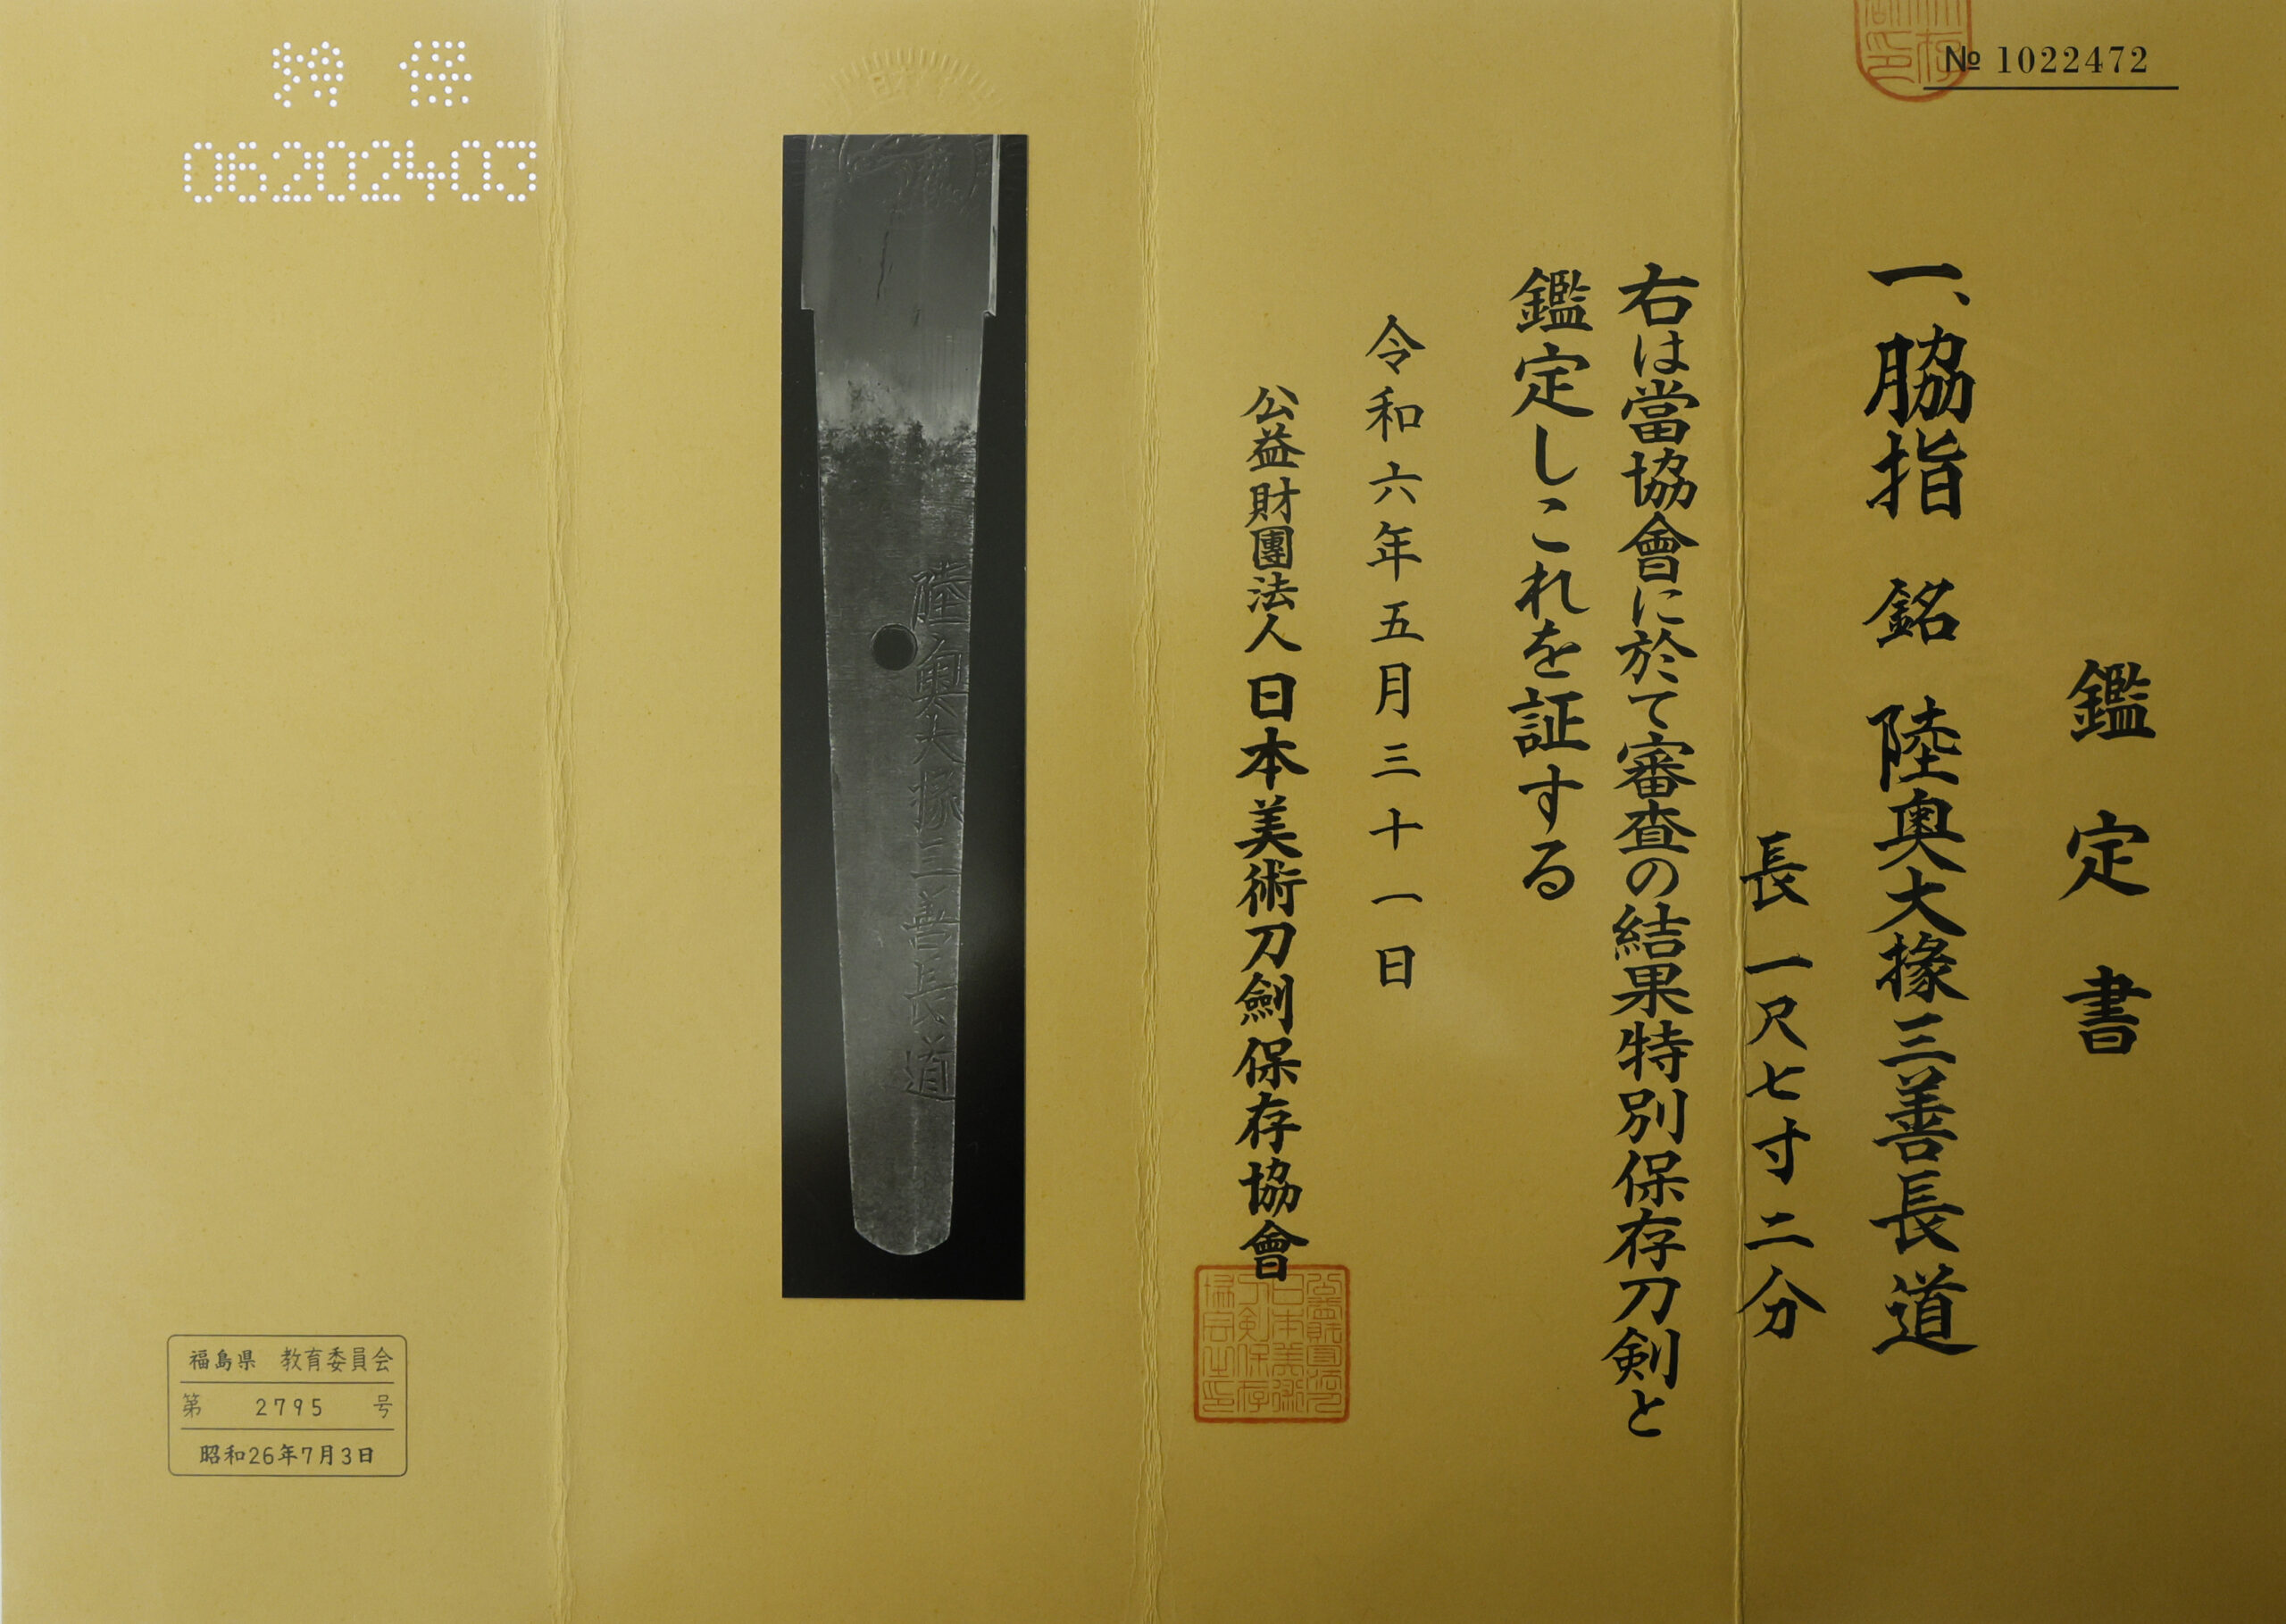 № 1022472
鑑定書
一、脇指 銘 陸奥大掾三善長道
長 一尺七寸二分
右は當協會に於て審査の結果特別保存刀剣と
鑑定しこれを証する
令和六年五月三十一日
公益財團法人 日本美術刀劍保存協會
陸奥大掾三善長道
特保
06202403
福島県 教育委員会
第 2795 号
昭和26年7月3日